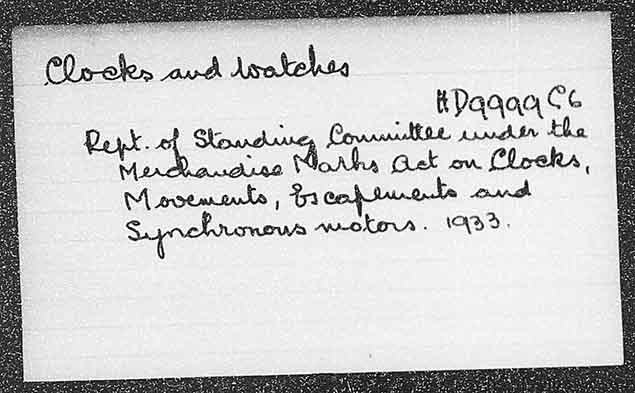 Clocks and Watches
HD9999 C6
Rept. of Standing Committee under the
Merchandise Marks Act on Clocks,
Movements, Escapements and
Synchronous motors. 1933.